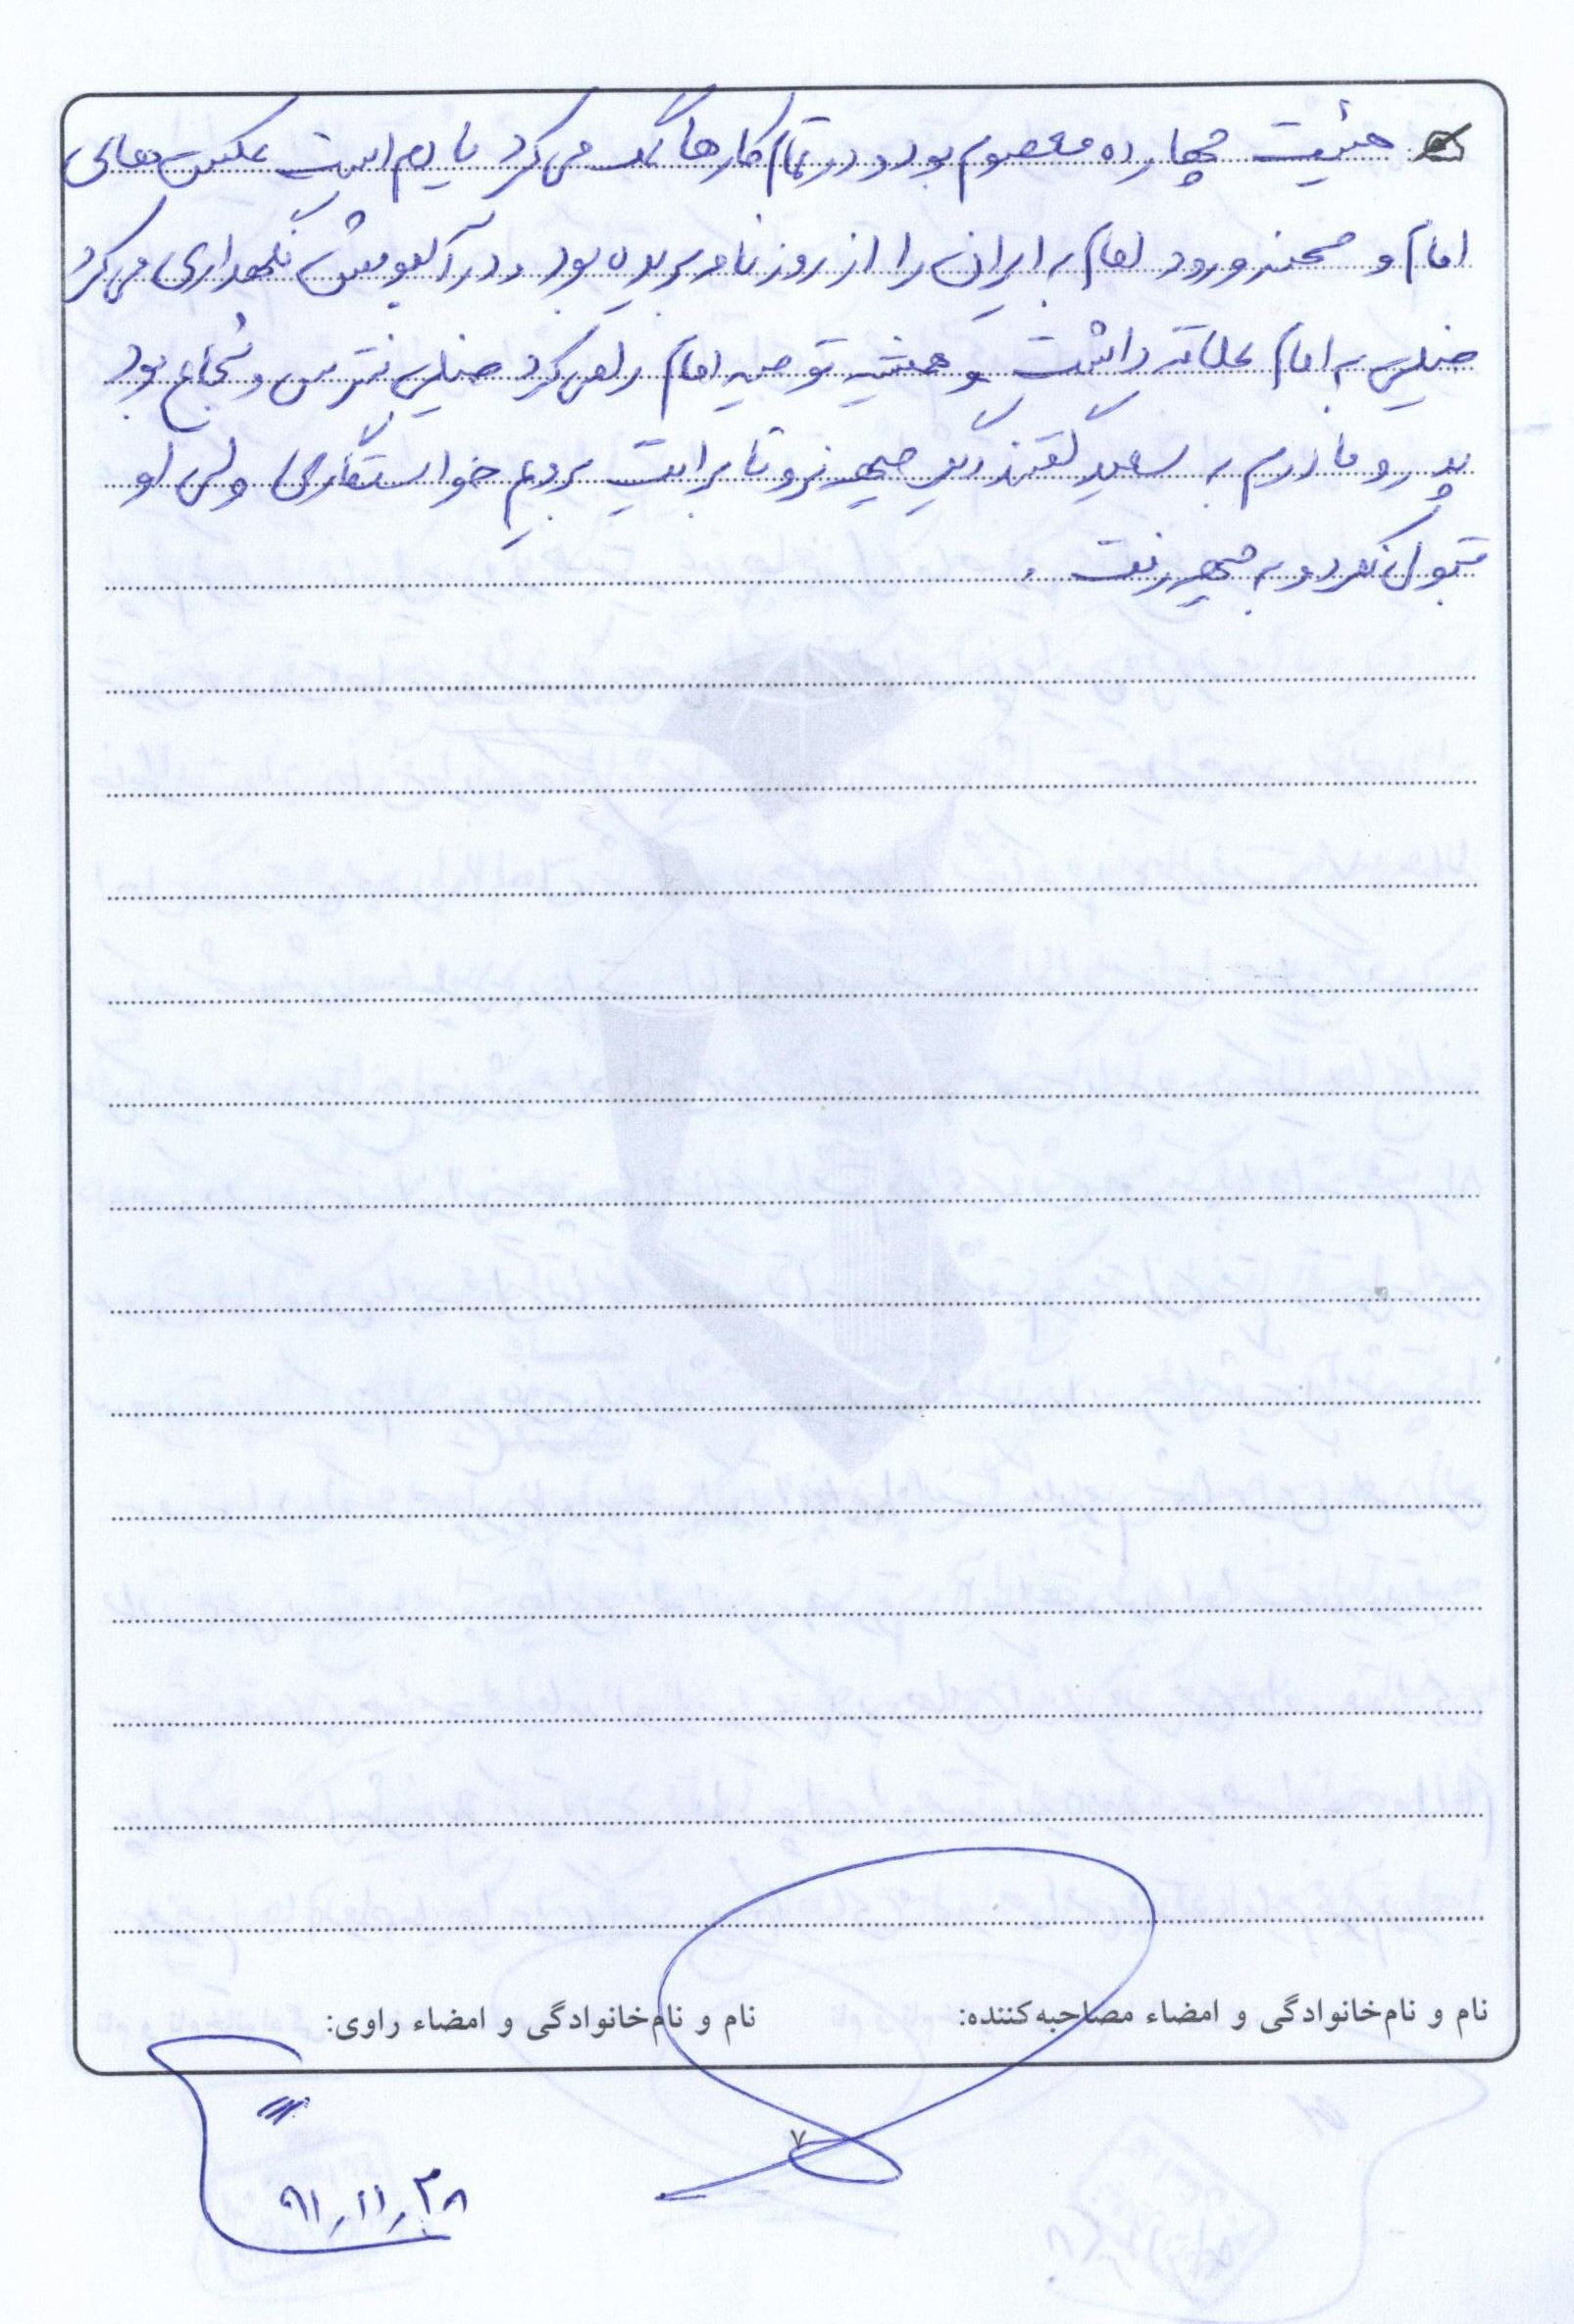 هیئت چهارده معصوم بود و در تمام کارها کمک می‌کرد یادم است عکس‌های
امام و صحنه ورود امام به ایران را از روزنامه بریده بود و در آلبومش نگهداری می‌کرد
خیلی به امام علاقه داشت و همیشه توصیه امام را می‌کرد خیلی نترس و شجاع بود
پدر و مادرم به سعید گفتند دیگر جبهه نرو تا برایت برویم خواستگاری ولی او
قبول نکرد و به جبهه رفت .
نام و نام‌خانوادگی و امضاء مصاحبه‌کننده:
نام و نام‌خانوادگی و امضاء راوی:
۷
۹۱٫۱۱٫۲۸